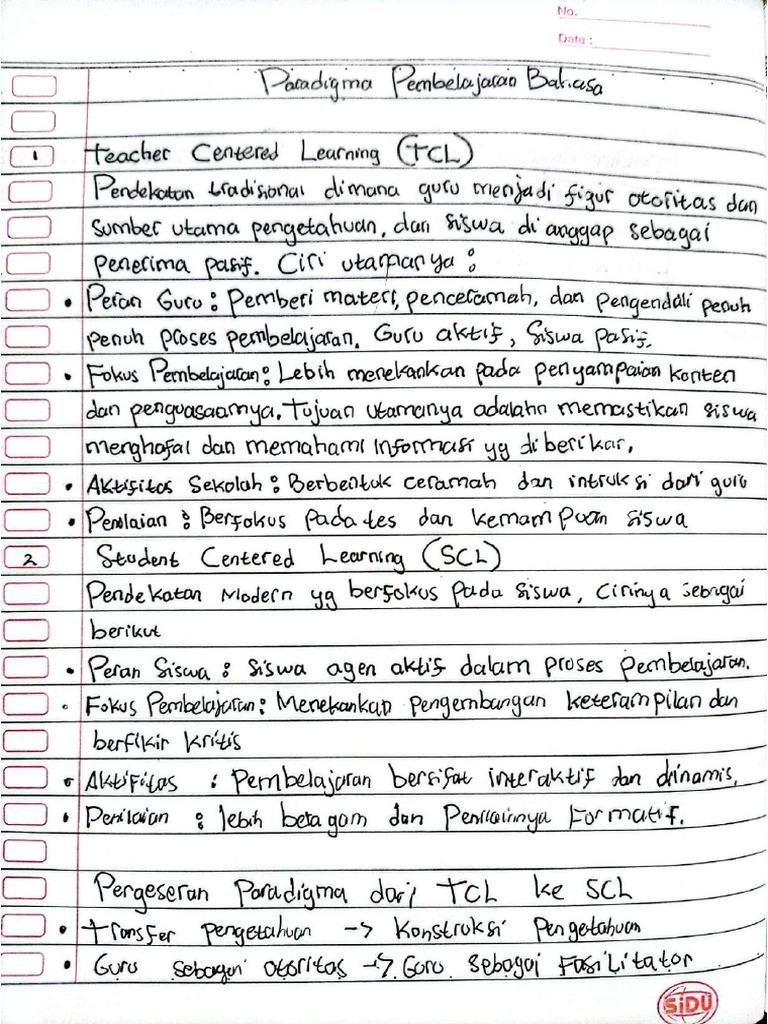 No.
Date :
Paradigma Pembelajaran Bahasa
1 Teacher Centered Learning (TCL)
Pendekatan tradisional dimana guru menjadi figur otoritas dan
sumber utama pengetahuan, dan siswa di anggap sebagai
penerima pasif. Ciri utamanya :
• Peran Guru : Pemberi materi, penceramah, dan pengendali penuh
penuh proses pembelajaran. Guru aktif, Siswa pasif.
• Fokus Pembelajaran : Lebih menekankan pada penyampaian konten
dan penguasaannya. Tujuan utamanya adalahn memastikan siswa
menghafal dan memahami informasi yg diberikan.
• Aktifitas Sekolah : Berbentuk ceramah dan intruksi dari guru
• Penilaian : Berfokus pada tes dan kemampuan siswa
2 Student Centered Learning (SCL)
Pendekatan Modern yg berfokus pada siswa, Cirinya sebagai
berikut
• Peran Siswa : Siswa agen aktif dalam proses pembelajaran.
• Fokus Pembelajaran : Menekankan pengembangan keterampilan dan
berfikir kritis
• Aktifitas : Pembelajaran bersifat interaktif dan dinamis.
• Penilaian : lebih beragam dan Penilainnya Formatif.
Pergeseran Paradigma dari TCL ke SCL
• Transfer Pengetahuan -> Konstruksi Pengetahuan
• Guru sebagai otoritas -> Guru sebagai Fasilitator
SiDU